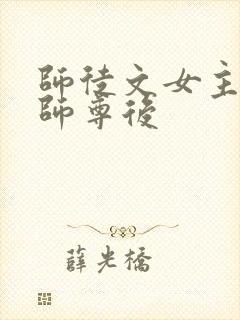 師徒文女主
師尊後
薛光橋